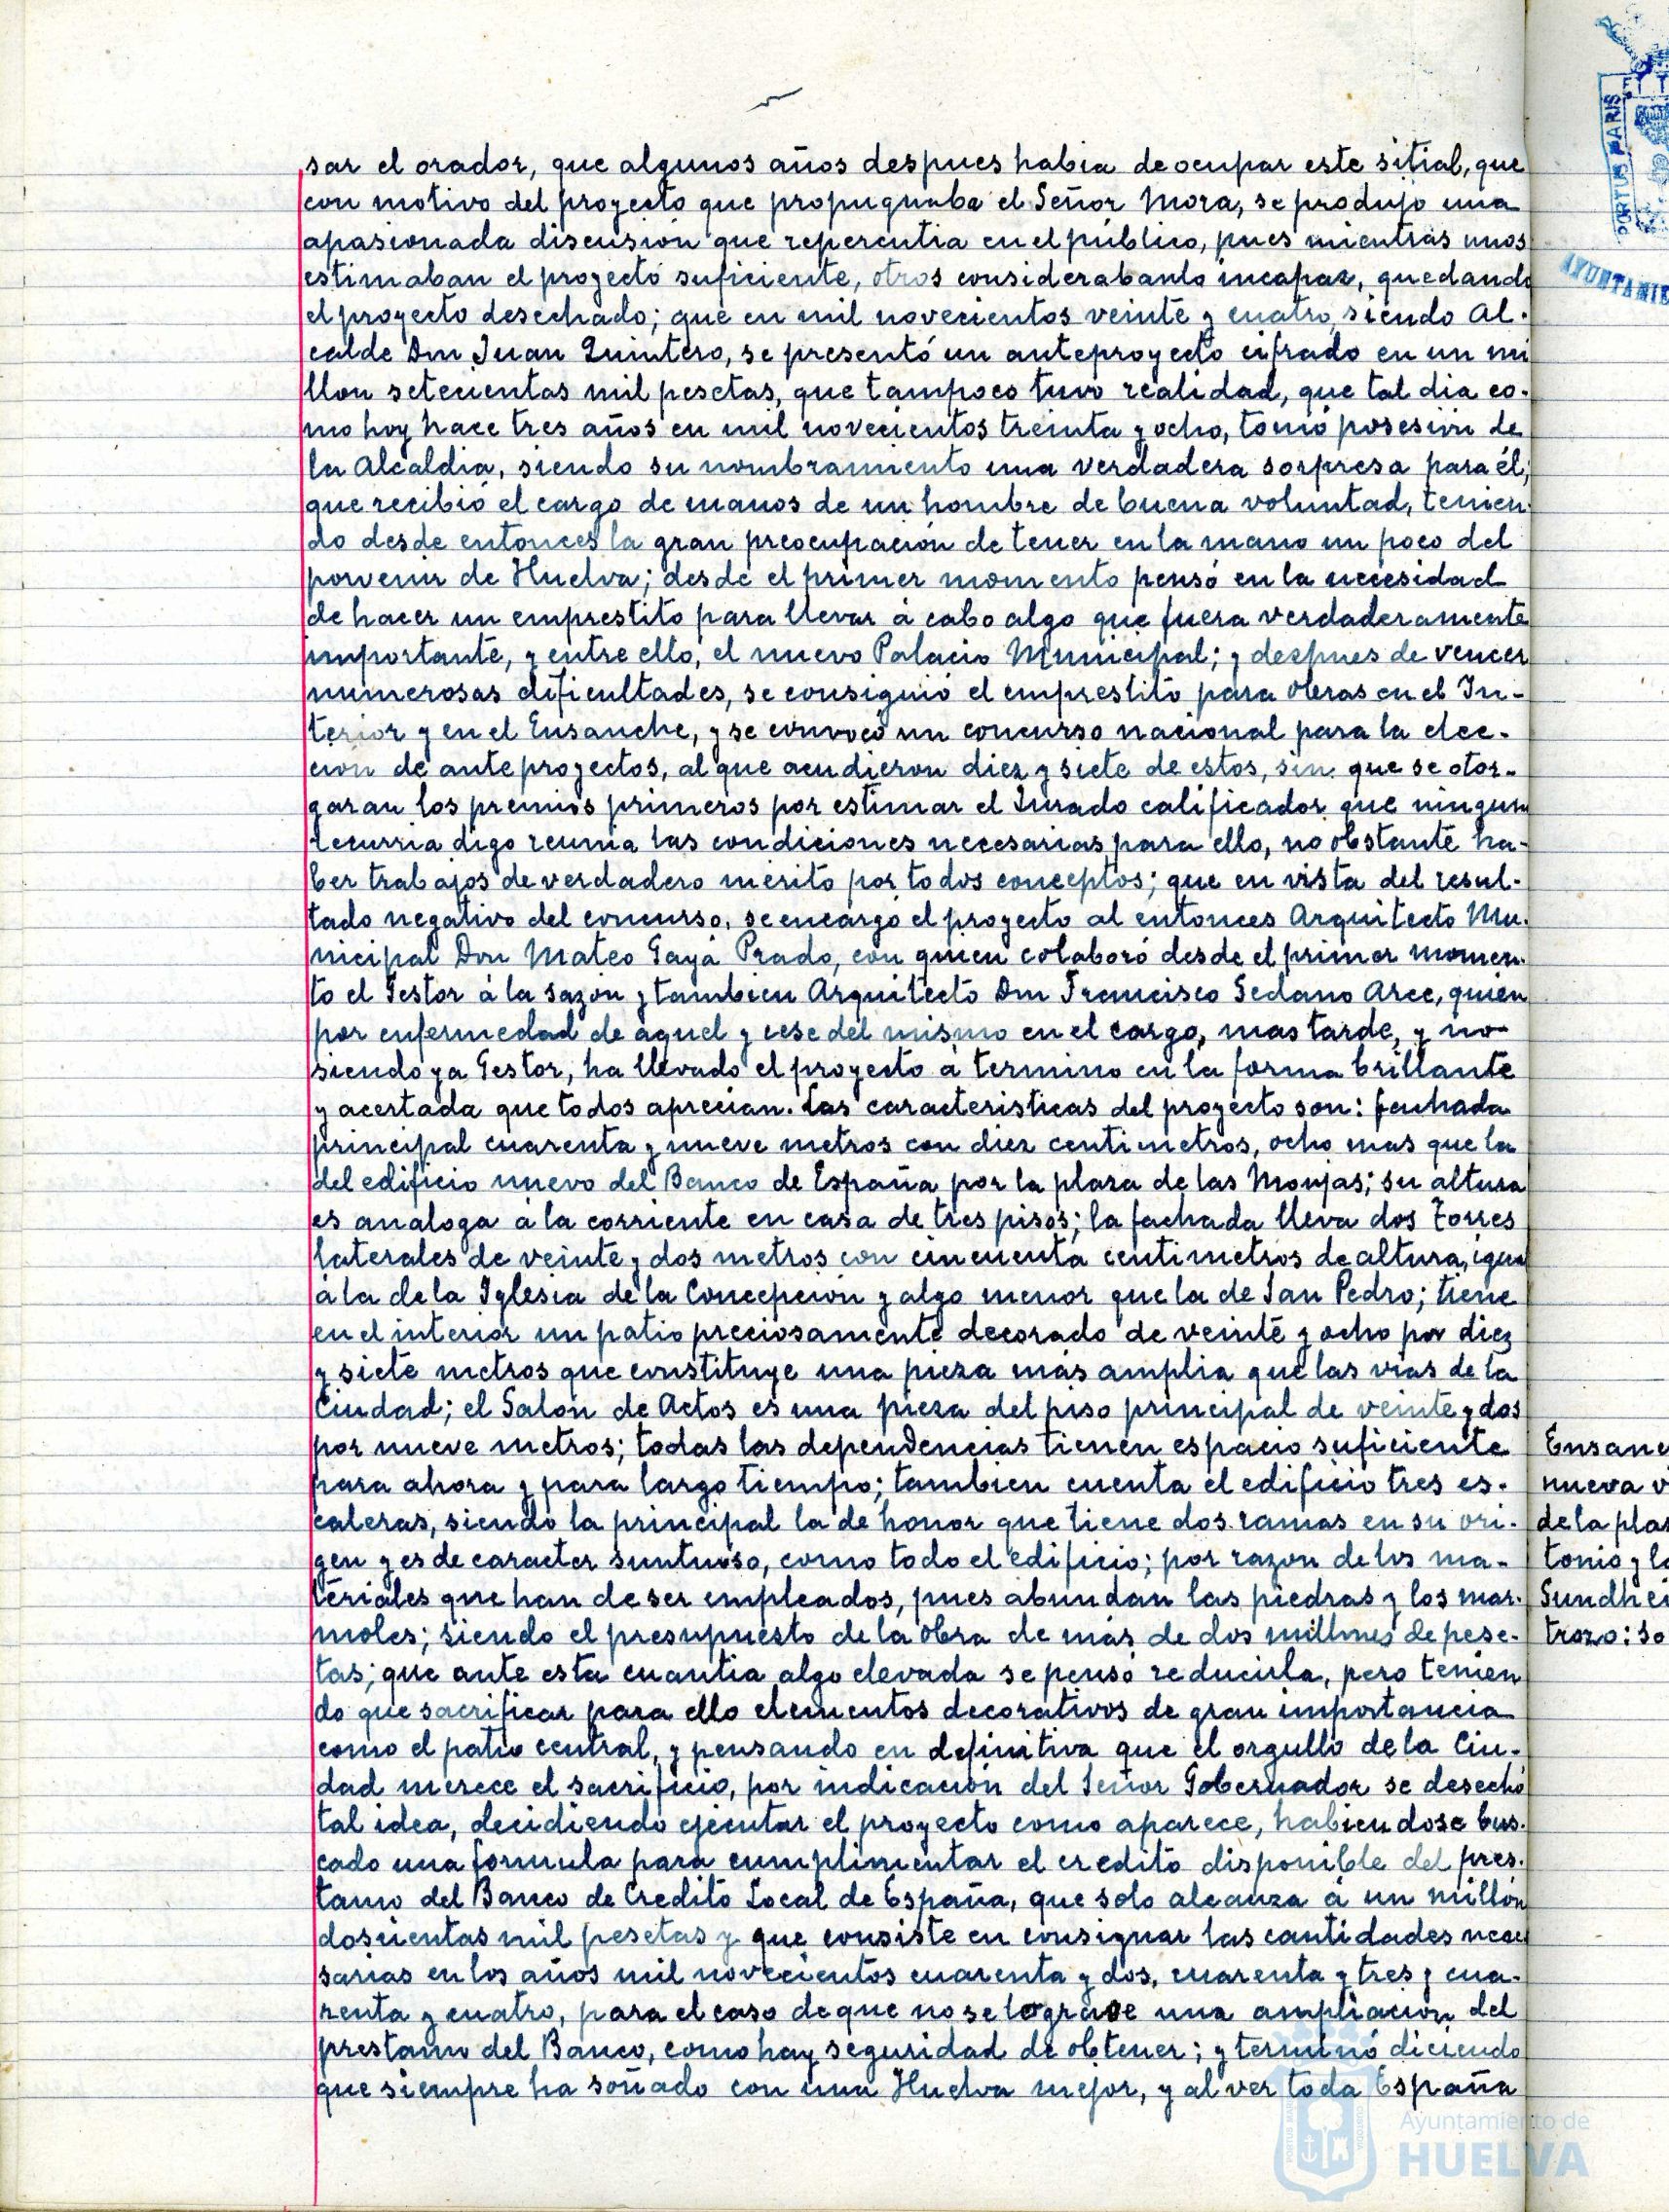 sar el orador, que algunos años despues habia de ocupar este sitial, que
con motivo del proyecto que propugnaba el Señor Mora, se produjo una
apasionada discusion que repercutia en el público, pues mientras unos
estimaban el proyecto suficiente, otros considerabanlo incapaz, quedando
el proyecto desechado; que en mil novecientos veinte y cuatro, siendo Al-
calde Don Juan Quintero, se presentó un anteproyecto cifrado en un mi
llon setecientas mil pesetas, que tampoco tuvo realidad, que tal dia co-
mo hoy hace tres años en mil novecientos treinta y ocho, tomó posesión de
la Alcaldia, siendo su nombramiento una verdadera sorpresa para él;
que recibió el cargo de manos de un hombre de buena voluntad, tenien-
do desde entonces la gran preocupación de tener en la mano un poco del
porvenir de Huelva; desde el primer momento pensó en la necesidad
de hacer un emprestito para llevar á cabo algo que fuera verdaderamente
importante, y entre ello, el nuevo Palacio Municipal; y despues de vencer
numerosas dificultades, se consiguió el emprestito para obras en el In-
terior y en el Ensanche, y se convocó un concurso nacional para la elec-
cion de anteproyectos, al que acudieron diez y siete de estos, sin que se otor-
garan los premios primeros por estimar el Jurado calificador que ninguno
recurria digo reunia las condiciones necesarias para ello, no obstante ha-
ber trabajos de verdadero merito por todos conceptos; que en vista del resul-
tado negativo del concurso, se encargó el proyecto al entonces Arquitecto Mu-
nicipal Don Mateo Gayá Prado, con quien colaboró desde el primer momen-
to el Gestor á la sazon y tambien Arquitecto Don Francisco Sedano Arce, quien
por enfermedad de aquel y cese del mismo en el cargo, mas tarde, y no
siendo ya Gestor, ha llevado el proyecto á termino en la forma brillante
y acertada que todos aprecian. Las caracteristicas del proyecto son: fachada
principal cuarenta y nueve metros con diez centimetros, ocho mas que la
del edificio nuevo del Banco de España por la plaza de las Monjas; su altura
es analoga á la corriente en casa de tres pisos; la fachada lleva dos Torres
laterales de veinte y dos metros con cincuenta centimetros de altura, igual
á la de la Iglesia de la Concepcion y algo menor que la de San Pedro; tiene
en el interior un patio preciosamente decorado de veinte y ocho por diez
y siete metros que constituye una pieza más amplia que las vias de la
Ciudad; el Salón de Actos es una pieza del piso principal de veinte y dos
por nueve metros; todas las dependencias tienen espacio suficiente
para ahora y para largo tiempo; tambien cuenta el edificio tres es-
caleras, siendo la principal la de honor que tiene dos ramas en su ori-
gen y es de caracter suntuoso, como todo el edificio; por razon de los ma-
teriales que han de ser empleados, pues abundan las piedras y los mar-
moles; siendo el presupuesto de la obra de más de dos millones de pese-
tas; que ante esta cuantia algo elevada se pensó reducirla, pero tenien
do que sacrificar para ello elementos decorativos de gran importancia
como el patio central, y pensando en definitiva que el orgullo de la Ciu-
dad merece el sacrificio, por indicación del Señor Gobernador se desechó
tal idea, decidiendo ejecutar el proyecto como aparece, habiendose bus-
cado una formula para cumplimentar el credito disponible del pres-
tamo del Banco de Credito Local de España, que solo alcanza á un millón
doscientas mil pesetas y que consiste en consignar las cantidades nece
sarias en los años mil novecientos cuarenta y dos, cuarenta y tres y cua-
renta y cuatro, para el caso de que no se lograse una ampliación del
prestamo del Banco, como hay seguridad de obtener; y terminó diciendo
que siempre ha soñado con una Huelva mejor, y al ver toda España
PORTUS MARIS
AYUNTAMIE
Ensanc
nueva v
de la plaz
tonio y la
Sundhei
trozo: so
Ayuntamiento de
HUELVA